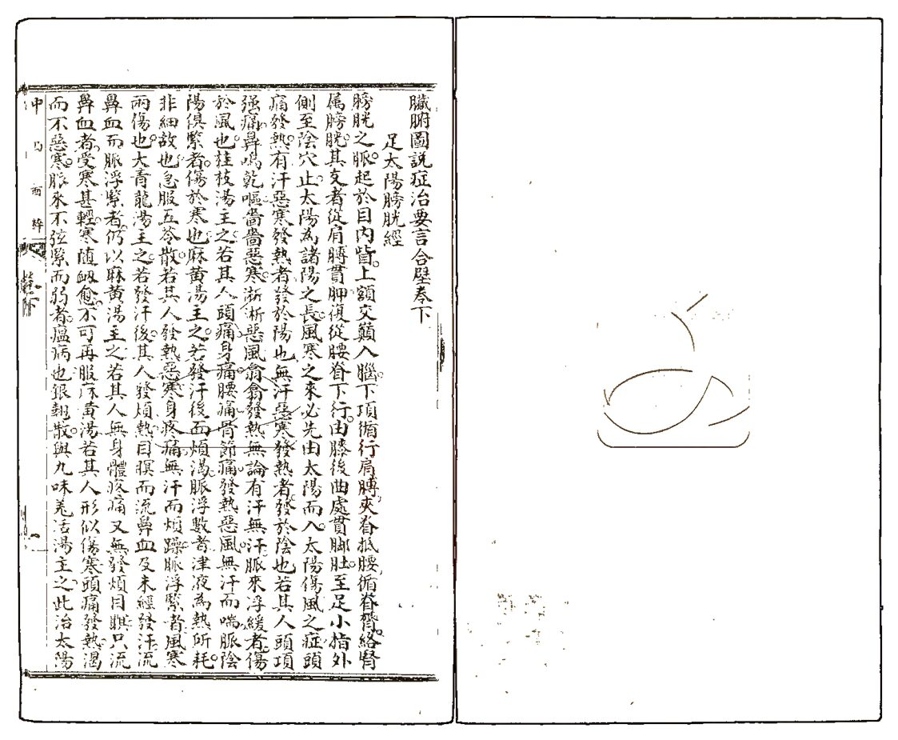 臟腑圖說症治要言合壁卷下
足太陽膀胱經
膀胱之脈起於目內眥上額交巔入腦下項循行肩膊夾脊抵腰循脊膂絡腎
属膀胱其支者從肩膊貫胛復從腰脊下行由膝後曲處貫腳肚至足小指外
側至陰穴止太陽為諸陽之長風寒之來必先由太陽而入太陽傷風之症頭
痛發熱有汗惡寒發熱者發於陽也無汗惡寒發熱者發於陰也若其人頭項
强痛鼻鳴乾嘔嗇嗇惡寒淅淅惡風翕翕發熱無論有汗無汗脈來浮緩者傷
於風也桂枝湯主之若其人頭痛身痛腰痛骨節痛發熱惡風無汗而喘脈陰
陽俱緊者傷於寒也麻黃湯主之若發汗後而煩渴脈浮數者津液為熱所耗
非細故也急服五苓散若其人發熱惡寒身疼痛無汗而煩躁脈浮緊者風寒
兩傷也大青龍湯主之若發汗後其人發煩熱目瞑而流鼻血及未經發汗流
鼻血而脈浮緊者仍以麻黃湯主之若其人無身體疼痛又無發煩目瞑只流
鼻血者受寒甚輕寒随衄愈不可再服麻黃湯若其人形似傷寒頭痛發熱渴
而不惡寒脈來不弦緊而弱者瘟病也銀翹散與九味羌活湯主之此治太陽
中 西